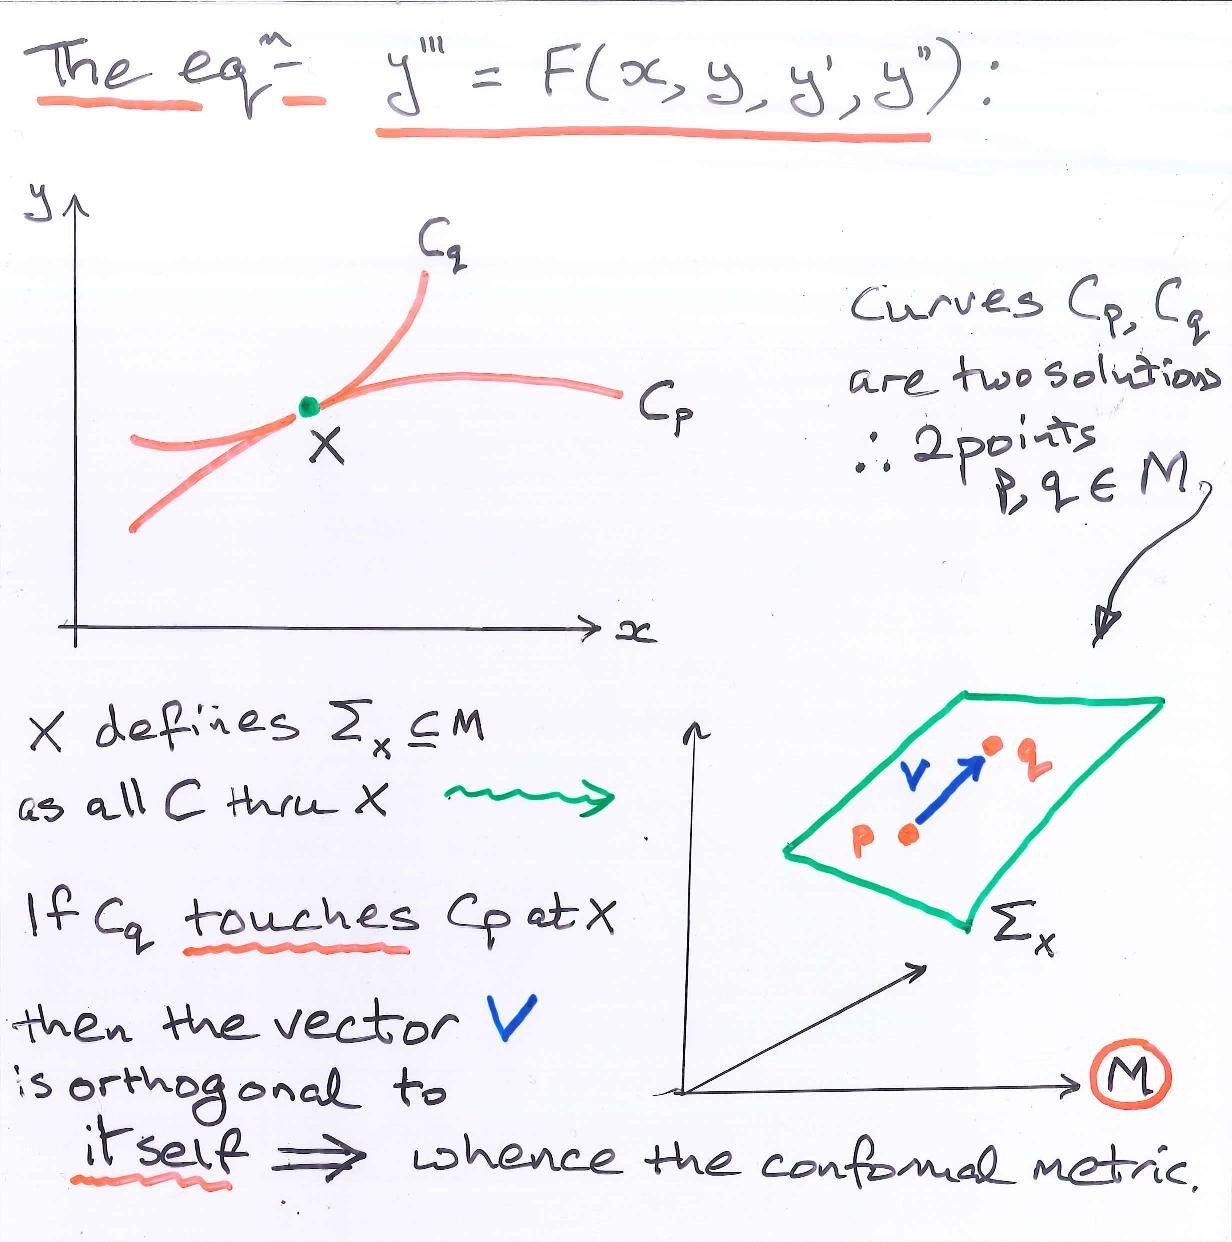 The eqⁿ y''' = F(x, y, y', y'') :
y
C_q
C_p
X
x
Curves C_p, C_q
are two solutions
∴ 2 points
p, q ∈ M,
X defines Σ_x ⊆ M
as all C thru X
If C_q touches C_p at X
then the vector V
is orthogonal to
itself ⇒ whence the conformal metric.
V
q
p
Σ_x
M